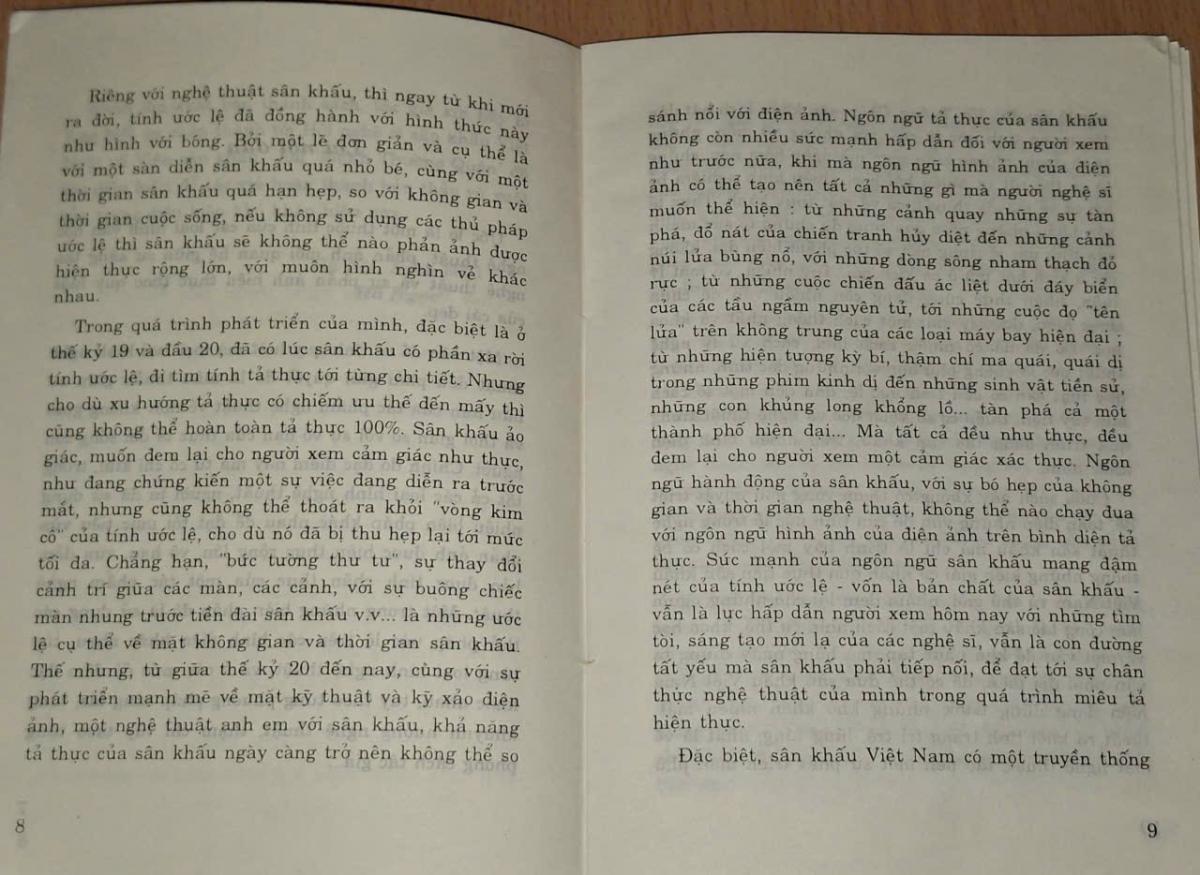 Riêng với nghệ thuật sân khấu, thì ngay từ khi mới
ra đời, tính ước lệ đã đồng hành với hình thức này
như hình với bóng. Bởi một lẽ đơn giản và cụ thể là
với một sàn diễn sân khấu quá nhỏ bé, cùng với một
thời gian sân khấu quá hạn hẹp, so với không gian và
thời gian cuộc sống, nếu không sử dụng các thủ pháp
ước lệ thì sân khấu sẽ không thể nào phản ảnh được
hiện thực rộng lớn, với muôn hình nghìn vẻ khác
nhau.
Trong quá trình phát triển của mình, đặc biệt là ở
thế kỷ 19 và đầu 20, đã có lúc sân khấu có phần xa rời
tính ước lệ, đi tìm tính tả thực tới từng chi tiết. Nhưng
cho dù xu hướng tả thực có chiếm ưu thế đến mấy thì
cũng không thể hoàn toàn tả thực 100%. Sân khấu ảo
giác, muốn đem lại cho người xem cảm giác như thực,
như đang chứng kiến một sự việc đang diễn ra trước
mắt, nhưng cũng không thể thoát ra khỏi "vòng kim
cô" của tính ước lệ, cho dù nó đã bị thu hẹp lại tới mức
tối đa. Chẳng hạn, "bức tường thư tư", sự thay đổi
cảnh trí giữa các màn, các cảnh, với sự buông chiếc
màn nhung trước tiền đài sân khấu v.v... là những ước
lệ cụ thể về mặt không gian và thời gian sân khấu.
Thế nhưng, từ giữa thế kỷ 20 đến nay, cùng với sự
phát triển mạnh mẽ về mặt kỹ thuật và kỹ xảo điện
ảnh, một nghệ thuật anh em với sân khấu, khả năng
tả thực của sân khấu ngày càng trở nên không thể so
8
sánh nổi với điện ảnh. Ngôn ngữ tả thực của sân khấu
không còn nhiều sức mạnh hấp dẫn đối với người xem
như trước nữa, khi mà ngôn ngữ hình ảnh của điện
ảnh có thể tạo nên tất cả những gì mà người nghệ sĩ
muốn thể hiện : từ những cảnh quay những sự tàn
phá, đổ nát của chiến tranh hủy diệt đến những cảnh
núi lửa bùng nổ, với những dòng sông nham thạch đỏ
rực ; từ những cuộc chiến đấu ác liệt dưới đáy biển
của các tầu ngầm nguyên tử, tới những cuộc đọ "tên
lửa" trên không trung của các loại máy bay hiện đại ;
từ những hiện tượng kỳ bí, thậm chí ma quái, quái dị
trong những phim kinh dị đến những sinh vật tiền sử,
những con khủng long khổng lồ... tàn phá cả một
thành phố hiện đại... Mà tất cả đều như thực, đều
đem lại cho người xem một cảm giác xác thực. Ngôn
ngũ hành động của sân khấu, với sự bó hẹp của không
gian và thời gian nghệ thuật, không thể nào chạy đua
với ngôn ngũ hình ảnh của điện ảnh trên bình diện tả
thực. Sức mạnh của ngôn ngũ sân khấu mang đậm
nét của tính ước lệ - vốn là bản chất của sân khấu -
vẫn là lực hấp dẫn người xem hôm nay với những tìm
tòi, sáng tạo mới lạ của các nghệ sĩ, vẫn là con đường
tất yếu mà sân khấu phải tiếp nối, để đạt tới sự chân
thực nghệ thuật của mình trong quá trình miêu tả
hiện thực.
Đặc biệt, sân khấu Việt Nam có một truyền thống
9